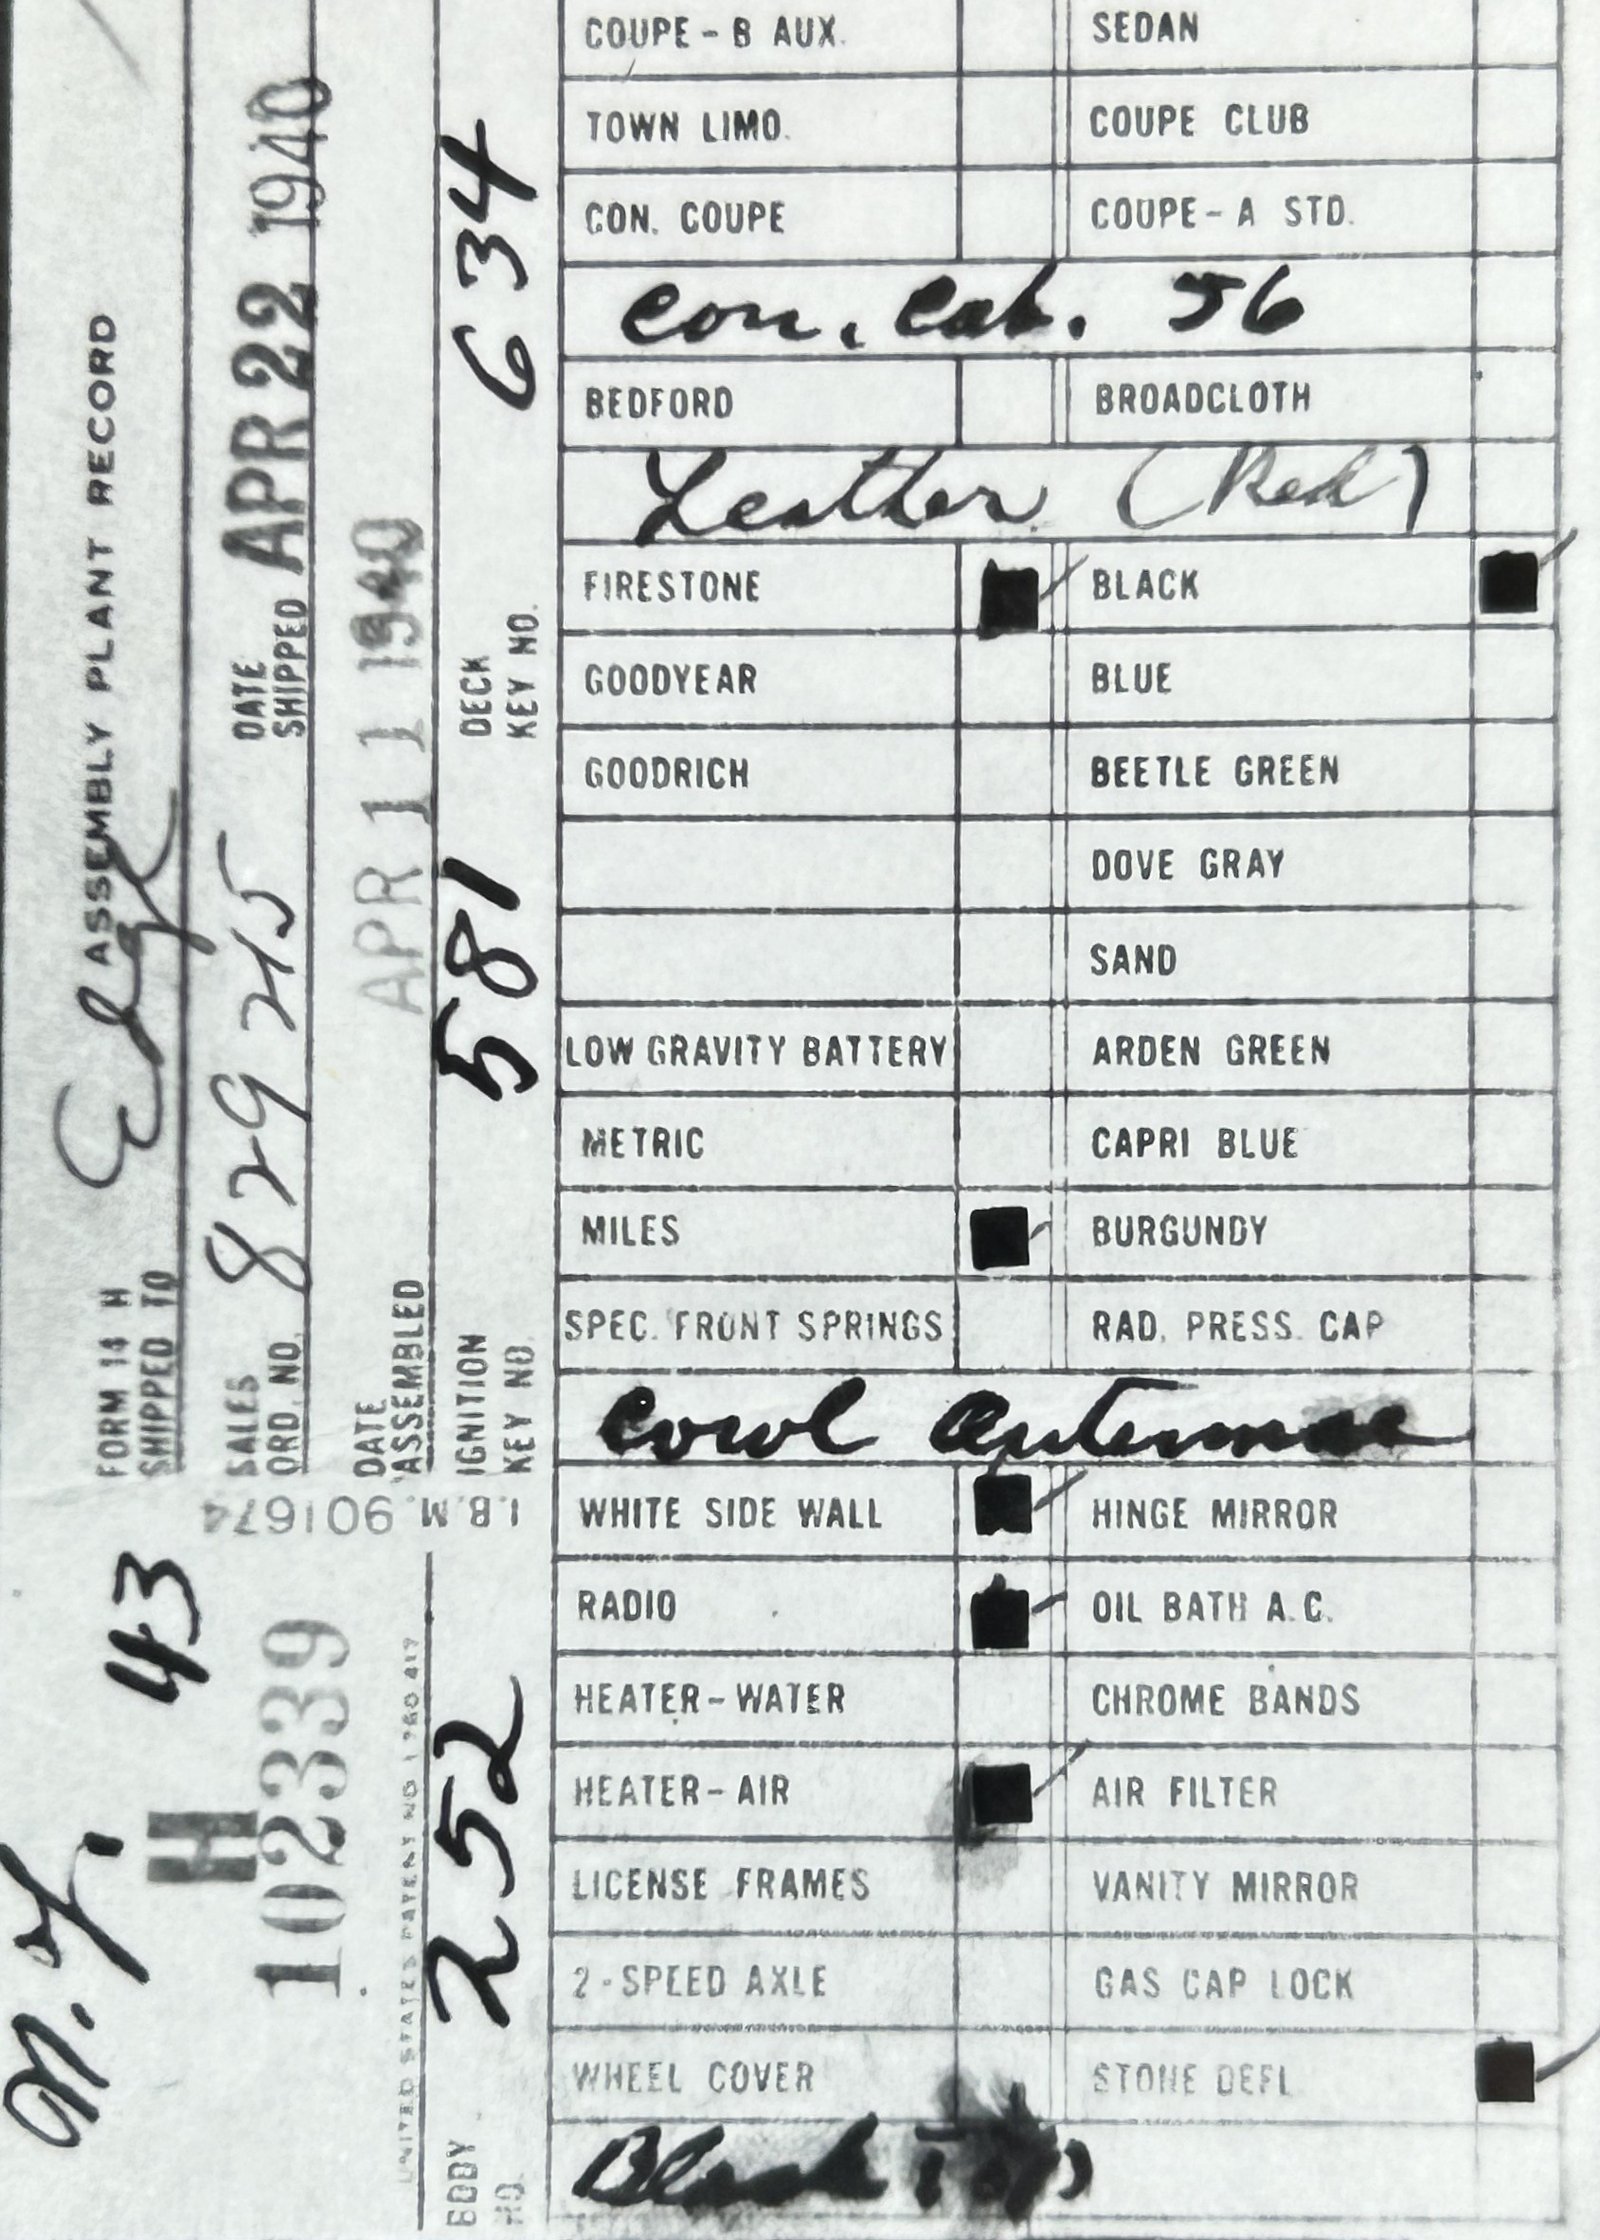 COUPE - B AUX. SEDAN
TOWN LIMO. COUPE CLUB
CON. COUPE COUPE - A STD.
Con. Cab. 56
BEDFORD BROADCLOTH
Leather (Red)
FIRESTONE BLACK
GOODYEAR BLUE
GOODRICH BEETLE GREEN
DOVE GRAY
SAND
LOW GRAVITY BATTERY ARDEN GREEN
METRIC CAPRI BLUE
MILES BURGUNDY
SPEC. FRONT SPRINGS RAD. PRESS. CAP
Cowl Antennae
WHITE SIDE WALL HINGE MIRROR
RADIO OIL BATH A.C.
HEATER - WATER CHROME BANDS
HEATER - AIR AIR FILTER
LICENSE FRAMES VANITY MIRROR
2 - SPEED AXLE GAS CAP LOCK
WHEEL COVER STONE DEFL
Black Top
43
H
102339
FORM 14 H ASSEMBLY PLANT RECORD
SHIPPED TO
SALES ORD. NO. 829215 DATE SHIPPED APR 22 1940
DATE ASSEMBLED APR 11 1940
BODY NO. 252 IGNITION KEY NO. 581 DECK KEY NO. 634
I.B.M. 901674
UNITED STATES PATENT NO 1 780 417